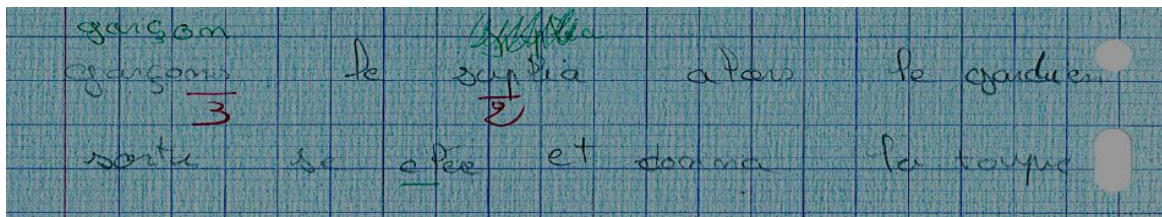 garçon
garçons le suplia alors le garduen
3 2
sortu se clée et donna la toupie